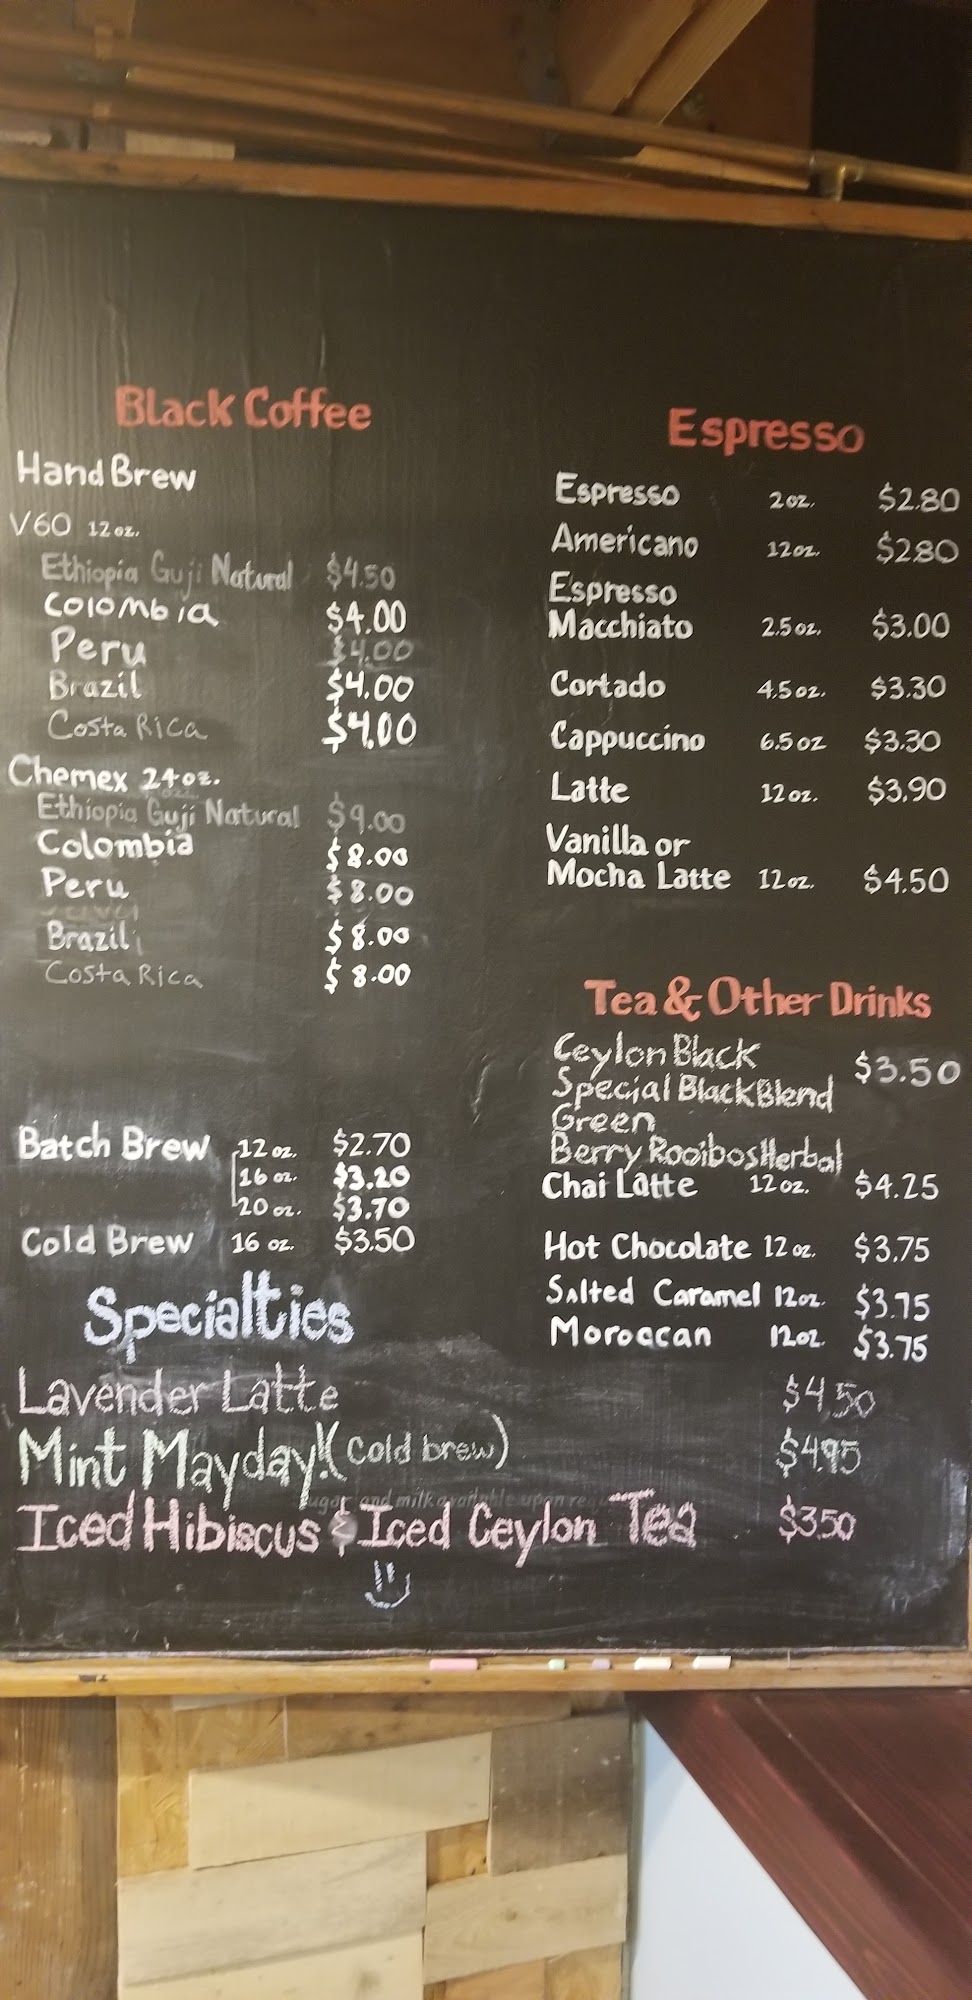 Black Coffee
Hand Brew
V60 12 oz.
Ethiopia Guji Natural $4.50
Colombia $4.00
Peru $4.00
Brazil $4.00
Costa Rica $4.00
Chemex 24 oz.
Ethiopia Guji Natural $9.00
Colombia $8.00
Peru $8.00
Brazil $8.00
Costa Rica $8.00
Batch Brew 12 oz. $2.70
16 oz. $3.20
20 oz. $3.70
Cold Brew 16 oz. $3.50
Espresso
Espresso 2 oz. $2.80
Americano 12 oz. $2.80
Espresso
Macchiato 2.5 oz. $3.00
Cortado 4.5 oz. $3.30
Cappuccino 6.5 oz $3.30
Latte 12 oz. $3.90
Vanilla or
Mocha Latte 12 oz. $4.50
Tea & Other Drinks
Ceylon Black $3.50
Special Black Blend
Green
Berry Rooibos Herbal
Chai Latte 12 oz. $4.25
Hot Chocolate 12 oz. $3.75
Salted Caramel 12 oz. $3.75
Moroccan 12 oz. $3.75
Specialties
Lavender Latte $4.50
Mint Mayday! (cold brew) $4.95
sugar and milk available upon
Iced Hibiscus & Iced Ceylon Tea $3.50